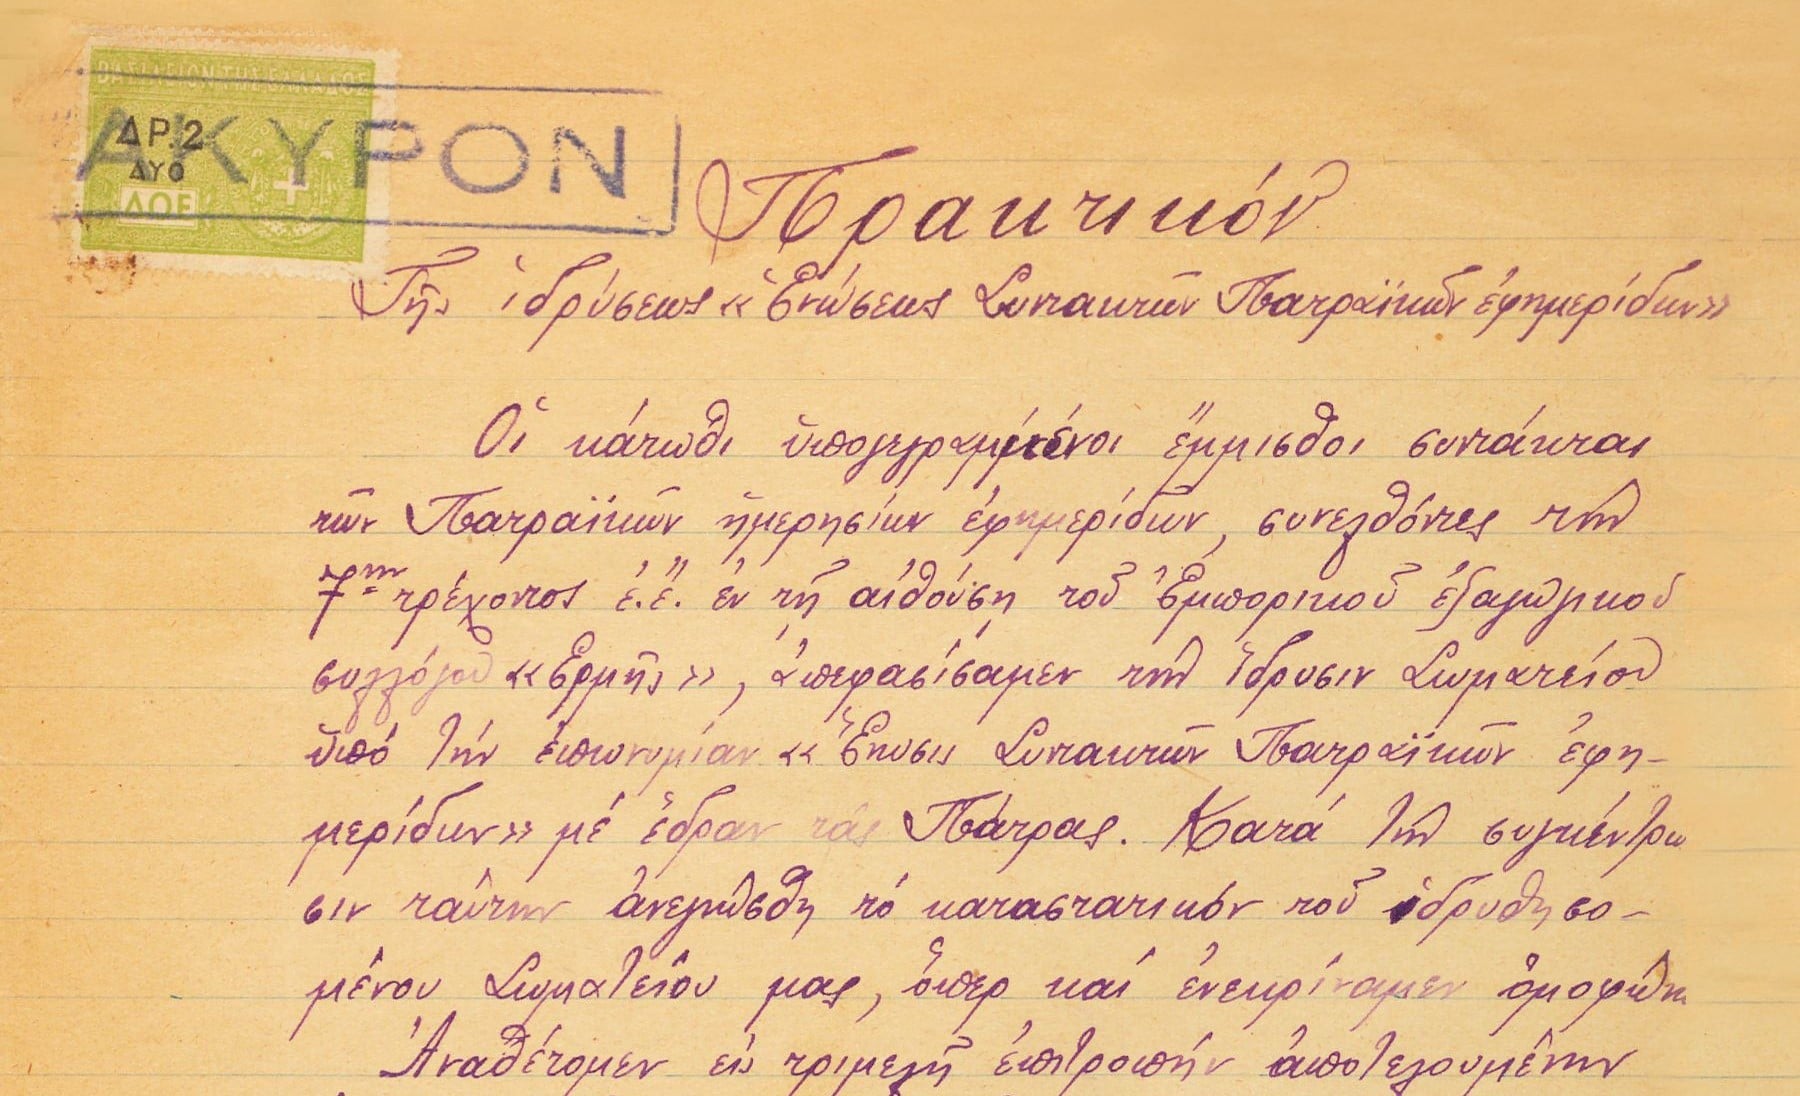 ΒΑΣΙΛΕΙΟΝ ΤΗΣ ΕΛΛΑΔΟΣ
ΔΡ.2
ΔΥΟ
ΑΚΥΡΟΝ
Πρακτικόν
Τῆς ἱδρύσεως «Ἑνώσεως Συντακτῶν Πατραϊκῶν ἐφημερίδων»
Οἱ κάτωθι ὑπογεγραμμένοι ἔμμισθοι συντάκται
τῶν Πατραϊκῶν ἡμερησίων ἐφημερίδων, συνελθόντες τήν
7ην τρέχοντος ἔ.ἔ. ἐν τῇ αἰθούσῃ τοῦ Ἐμπορικοῦ ἐξαγωγικοῦ
συλλόγου «Ερμῆς», ἀπεφασίσαμεν τήν ἵδρυσιν Σωματείου
ὑπό τήν ἐπωνυμίαν «Ἕνωσις Συντακτῶν Πατραϊκῶν ἐφη-
μερίδων» μέ ἕδραν τάς Πάτρας. Κατά τήν συγκέντρω
σιν ταύτην ἀνεγνώσθη τό καταστατικόν τοῦ ἱδρυθησο-
μένου Σωματείου μας, ὅπερ καί ἐνεκρίναμεν ὁμοφώνως
Ἀναθέτομεν εἰς τριμελῆ ἐπιτροπήν ἀποτελουμένην